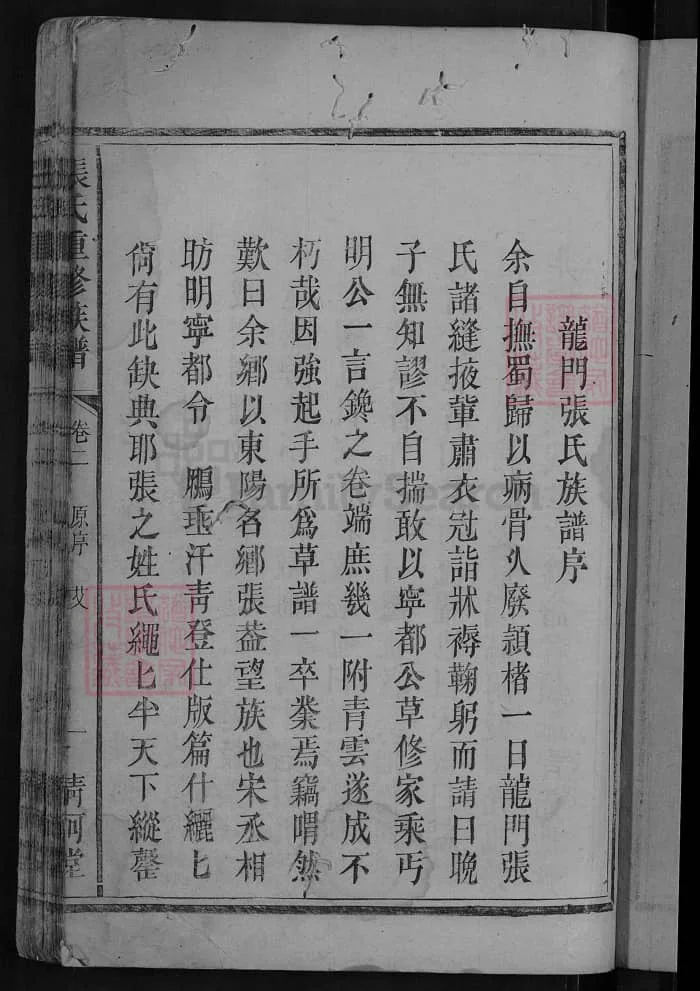 龍門張氏族譜序
余自撫蜀歸以病骨久廢頴楮一日龍門張
氏諸縫掖軰肅衣冠詣牀褥鞠躬而請曰晚
子無知謬不自揣敢以寧都公草修家乘丐
明公一言鑱之卷端庶幾一附青雲遂成不
朽哉因強起手所爲草譜一卒業焉竊喟然
歎曰余鄉以東陽名鄉張葢望族也宋丞相
昉明寧都令 鵬乖汗青登仕版篇什纚匕
尙有此缺典耶張之姓氏繩匕半天下縱罄
張氏重修族譜
卷二
原序
一
清河堂
FamilySearch